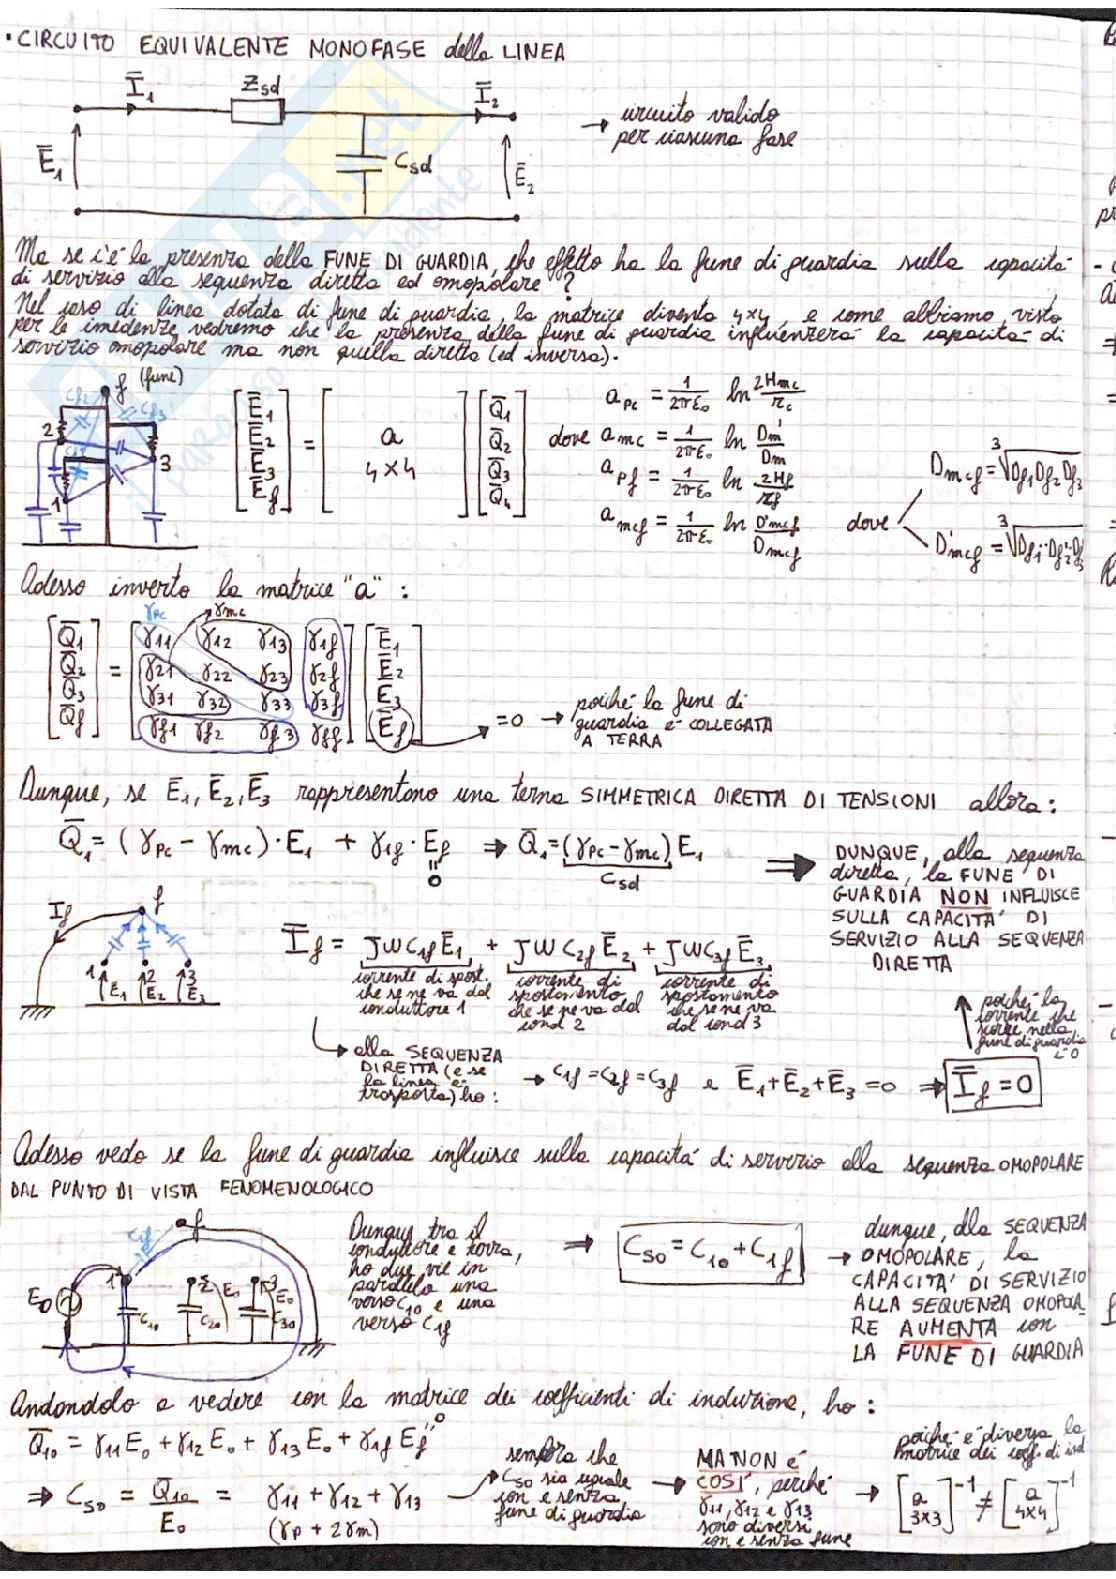 • CIRCUITO EQUIVALENTE MONOFASE della LINEA
Ī₁ Z_sd Ī₂
Ē₁ C_sd Ē₂
→ circuito valido
per ciascuna fase
Ma se c'è la presenza della FUNE DI GUARDIA, che effetto ha la fune di guardia sulla capacità
di servizio alla sequenza diretta ed omopolare?
Nel caso di linea dotata di fune di guardia, la matrice diventa 4x4, e come abbiamo visto
per le incidenze vedremo che la presenza della fune di guardia influenzerà la capacità di
servizio omopolare ma non quella diretta (ed inversa).
f (fune)
2 3 1
[Ē₁ Ē₂ Ē₃ Ē_f] = [a 4×4] [Q̄₁ Q̄₂ Q̄₃ Q̄₄]
dove
a_pc = 1/2πε₀ ln 2Hmc/r_c
a_mc = 1/2πε₀ ln D'm/Dm
a_pf = 1/2πε₀ ln 2Hf/r_f
a_mcf = 1/2πε₀ ln D'mcf/Dmcf
dove
D_mcf = ³√Df₁Df₂Df₃
D'_mcf = ³√Df₁'·Df₂'·Df₃'
Adesso inverto la matrice "a":
γpc γmc
Q̄₁ = γ11 γ12 γ13 γ1f Ē₁
Q̄₂ γ21 γ22 γ23 γ2f Ē₂
Q̄₃ γ31 γ32 γ33 γ3f Ē₃
Q̄_f γf1 γf2 γf3 γff Ē_f
=0 → poiché la fune di
guardia è COLLEGATA
A TERRA
Dunque, se Ē₁, Ē₂, Ē₃ rappresentano una terna SIMMETRICA DIRETTA DI TENSIONI allora:
Q̄₁ = (γpc - γmc)·E₁ + γ1f·E_f ⇒ Q̄₁ = (γpc-γmc) E₁
=0
C_sd
⇒ DUNQUE, alla sequenza
diretta, la FUNE DI
GUARDIA NON INFLUISCE
SULLA CAPACITA' DI
SERVIZIO ALLA SEQUENZA
DIRETTA
I_f f
1 2 3
Ē₁ Ē₂ Ē₃
Ī_f = JωC1f Ē₁ + JωC2f Ē₂ + JωC3f Ē₃
corrente di spost.
che se ne va dal
conduttore 1
corrente di
spostamento
che se ne va dal
cond 2
corrente di
spostamento
che se ne va
dal cond 3
poiché la
corrente che
scorre nella
fune di guardia
è 0
→ alla SEQUENZA
DIRETTA (e se
la linea è
trasposta) ho:
→ C1f = C2f = C3f e Ē₁+Ē₂+Ē₃ = 0 ⇒ Ī_f = 0
Adesso vedo se la fune di guardia influisce sulla capacità di servizio alla sequenza OMOPOLARE
DAL PUNTO DI VISTA FENOMENOLOGICO
C1f f
E₀ 1 2 E₀ 3 Ē₀
C10 C20 C30
Dunque tra il
conduttore e terra,
ho due vie in
parallelo una
verso C10 e una
verso C1f
⇒ C_so = C_10 + C_1f
→ dunque, alla SEQUENZA
OMOPOLARE, la
CAPACITA' DI SERVIZIO
ALLA SEQUENZA OMOPOLA-
RE AUMENTA con
LA FUNE DI GUARDIA
Andandolo a vedere con la matrice dei coefficienti di induzione, ho:
Q̄10 = γ11 E₀ + γ12 E₀ + γ13 E₀ + γ1f E_f =0
⇒ C_so = Q̄10/E₀ = γ11 + γ12 + γ13
(γp + 2γm)
sembra che
C_so sia uguale
con e senza
fune di guardia
→ MA NON è
COSI', perché
γ11, γ12 e γ13
sono diversi
con e senza fune
→ poiché è diversa la
matrice dei coeff. di ind
[a 3×3]⁻¹ ≠ [a 4×4]⁻¹